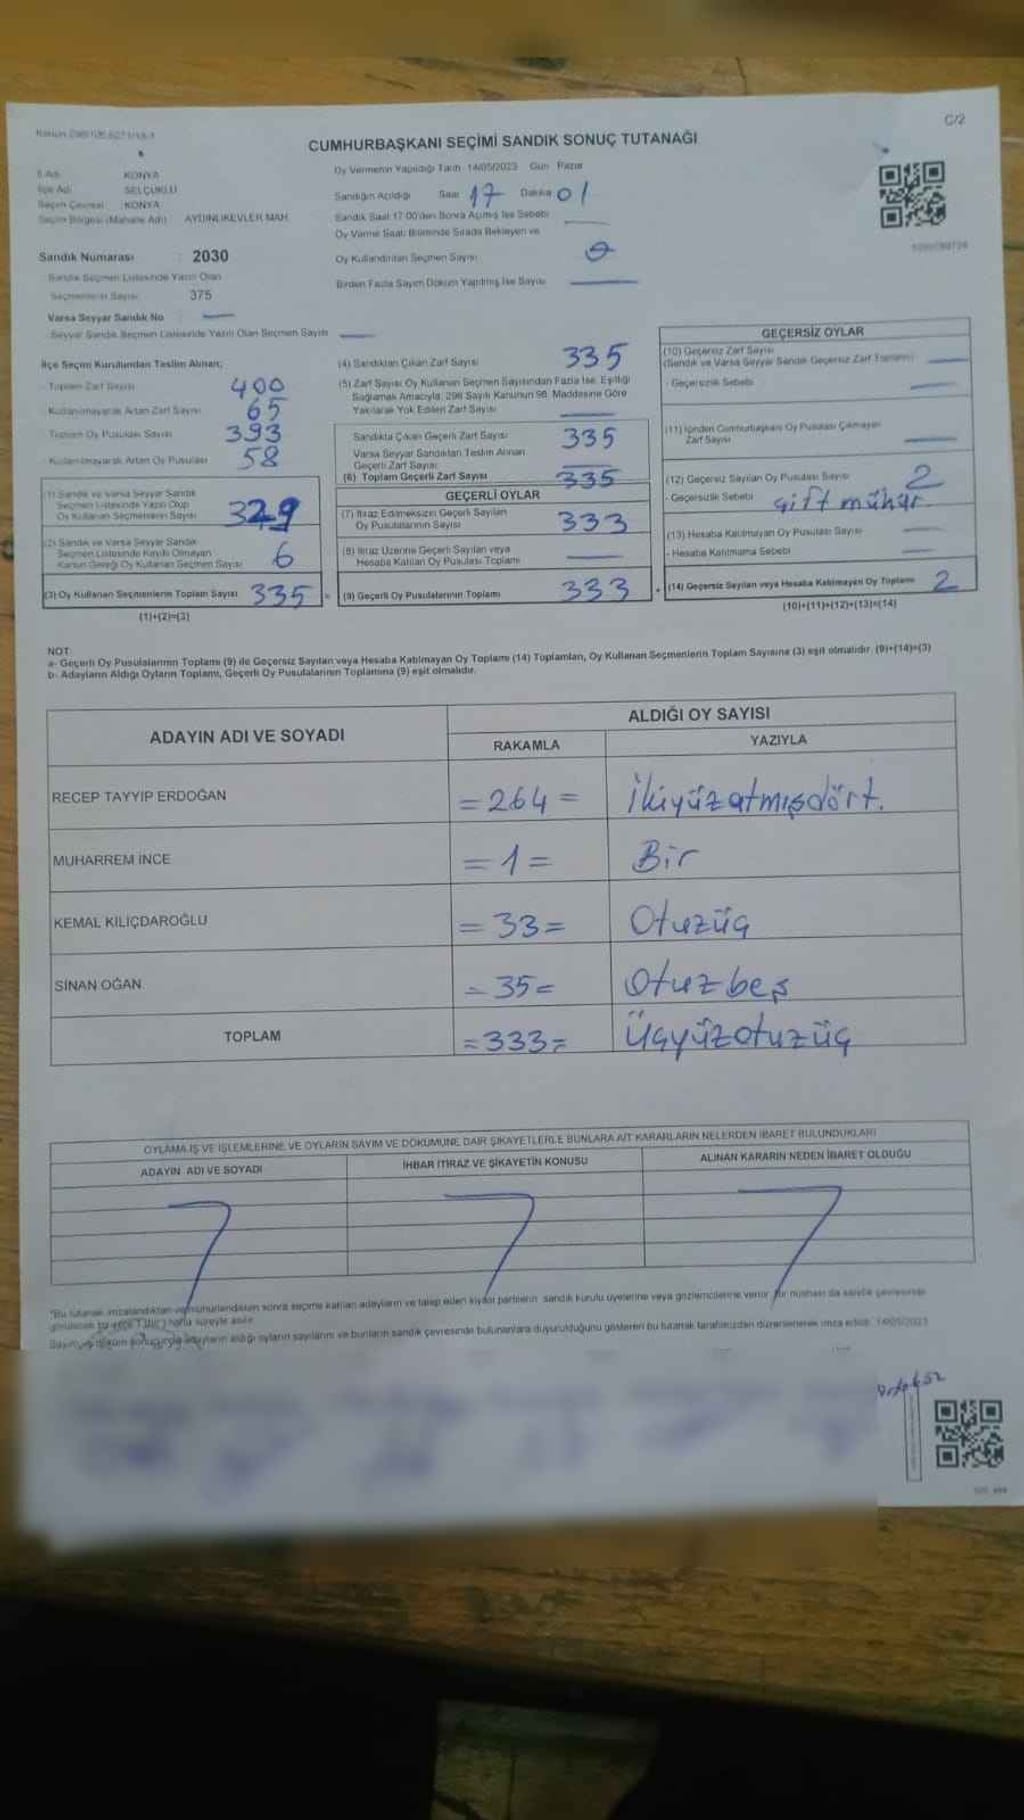 C/2
CUMHURBAŞKANI SEÇİMİ SANDIK SONUÇ TUTANAĞI
Oy Vermenin Yapıldığı Tarih 14/05/2023 Gün Pazar
İl Adı KONYA
İlçe Adı SELÇUKLU
Seçim Çevresi KONYA
Seçim Bölgesi (Mahalle Adı) AYDINLIKEVLER MAH.
Sandığın Açıldığı Saat 17 Dakika 01
Sandık Saat 17.00'den Sonra Açılmış İse Sebebi
Oy Verme Saati Bitiminde Sırada Bekleyen ve
Oy Kullandırılan Seçmen Sayısı
Birden Fazla Sayım Döküm Yapılmış İse Sayısı
Sandık Numarası : 2030
Sandık Seçmen Listesinde Yazılı Olan
Seçmenlerin Sayısı 375
Varsa Seyyar Sandık No
Seyyar Sandık Seçmen Listesinde Yazılı Olan Seçmen Sayısı
İlçe Seçim Kurulundan Teslim Alınan;
- Toplam Zarf Sayısı 400
- Kullanılmayarak Artan Zarf Sayısı 65
Toplam Oy Pusulası Sayısı 393
- Kullanılmayarak Artan Oy Pusulası 58
(1) Sandık ve Varsa Seyyar Sandık
Seçmen Listesinde Yazılı Olup
Oy Kullanan Seçmenlerin Sayısı 329
(2) Sandık ve Varsa Seyyar Sandık
Seçmen Listesinde Kayıtlı Olmayan
Kanun Gereği Oy Kullanan Seçmen Sayısı 6
(3) Oy Kullanan Seçmenlerin Toplam Sayısı 335
(1)+(2)=(3)
(4) Sandıktan Çıkan Zarf Sayısı 335
(5) Zarf Sayısı Oy Kullanan Seçmen Sayısından Fazla İse, Eşitliği
Sağlamak Amacıyla, 298 Sayılı Kanunun 98. Maddesine Göre
Yakılarak Yok Edilen Zarf Sayısı
Sandıkta Çıkan Geçerli Zarf Sayısı 335
Varsa Seyyar Sandıktan Teslim Alınan
Geçerli Zarf Sayısı
(6) Toplam Geçerli Zarf Sayısı 335
GEÇERLİ OYLAR
(7) İtiraz Edilmeksizin Geçerli Sayılan
Oy Pusulalarının Sayısı 333
(8) İtiraz Üzerine Geçerli Sayılan veya
Hesaba Katılan Oy Pusulası Toplamı
(9) Geçerli Oy Pusulalarının Toplamı 333
GEÇERSİZ OYLAR
(10) Geçersiz Zarf Sayısı
(Sandık ve Varsa Seyyar Sandık Geçersiz Zarf Toplamı)
- Geçersizlik Sebebi
(11) İçinden Cumhurbaşkanı Oy Pusulası Çıkmayan
Zarf Sayısı
(12) Geçersiz Sayılan Oy Pusulası Sayısı 2
- Geçersizlik Sebebi Çift mühür
(13) Hesaba Katılmayan Oy Pusulası Sayısı
- Hesaba Katılmama Sebebi
(14) Geçersiz Sayılan veya Hesaba Katılmayan Oy Toplamı 2
(10)+(11)+(12)+(13)=(14)
NOT:
a- Geçerli Oy Pusulalarının Toplamı (9) ile Geçersiz Sayılan veya Hesaba Katılmayan Oy Toplamı (14) Toplamları, Oy Kullanan Seçmenlerin Toplam Sayısına (3) eşit olmalıdır. (9)+(14)=(3)
b- Adayların Aldığı Oyların Toplamı, Geçerli Oy Pusulalarının Toplamına (9) eşit olmalıdır.
ADAYIN ADI VE SOYADI
ALDIĞI OY SAYISI
RAKAMLA YAZIYLA
RECEP TAYYİP ERDOĞAN =264= İkiyüzatmışdört.
MUHARREM İNCE =1= Bir
KEMAL KILIÇDAROĞLU =33= Otuzüç
SİNAN OĞAN =35= Otuzbeş
TOPLAM =333= Üçyüzotuzüç
OYLAMA İŞ VE İŞLEMLERİNE VE OYLARIN SAYIM VE DÖKÜMÜNE DAİR ŞİKAYETLERLE BUNLARA AİT KARARLARIN NELERDEN İBARET BULUNDUKLARI
ADAYIN ADI VE SOYADI İHBAR İTİRAZ VE ŞİKAYETİN KONUSU ALINAN KARARIN NEDEN İBARET OLDUĞU